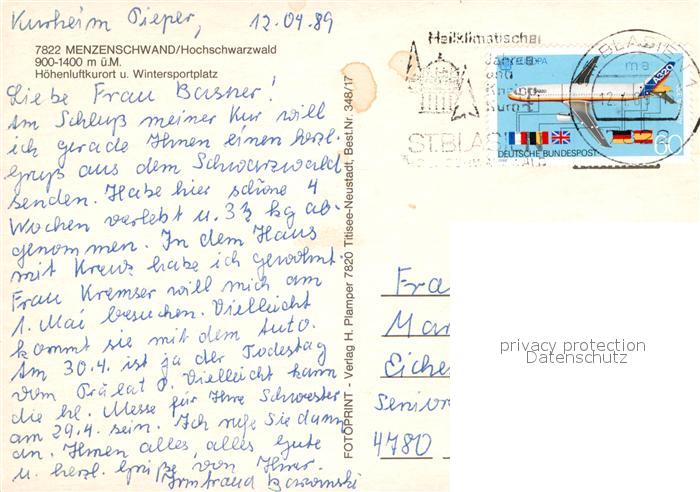 Kurheim Pieper, 12.04.89
7822 MENZENSCHWAND/Hochschwarzwald
900-1400 m ü.M.
Höhenluftkurort u. Wintersportplatz
Liebe Frau Basner!
Am Schluß meiner Kur will
ich gerade Ihnen einen herzl.
Gruß aus dem Schwarzwald
senden. Habe hier schöne 4
Wochen verlebt u. 3½ kg ab-
genommen. In dem Haus
mit Kreuz habe ich gewohnt.
Frau Kremser will mich am
1. Mai besuchen. Vielleicht
kommt sie mit dem Auto.
Am 30.4. ist ja der Todestag
vom Prälat P. Vielleicht kann
die hl. Messe für Ihre Schwester
am 29.4. sein. Ich rufe Sie dann
an. Ihnen alles, alles Gute
u. herzl. Grüße von Ihrer
Irmtraud
FOTOPRINT - Verlag H. Plamper 7820 Titisee-Neustadt, Best.Nr. 348/17
Heilklimatischer
Jahre
ST.BLAS
BLASIE
EUROPA
A320
DEUTSCHE BUNDESPOST
60
Fra
Mar
Eiche
Senior
4780
privacy protection
Datenschutz